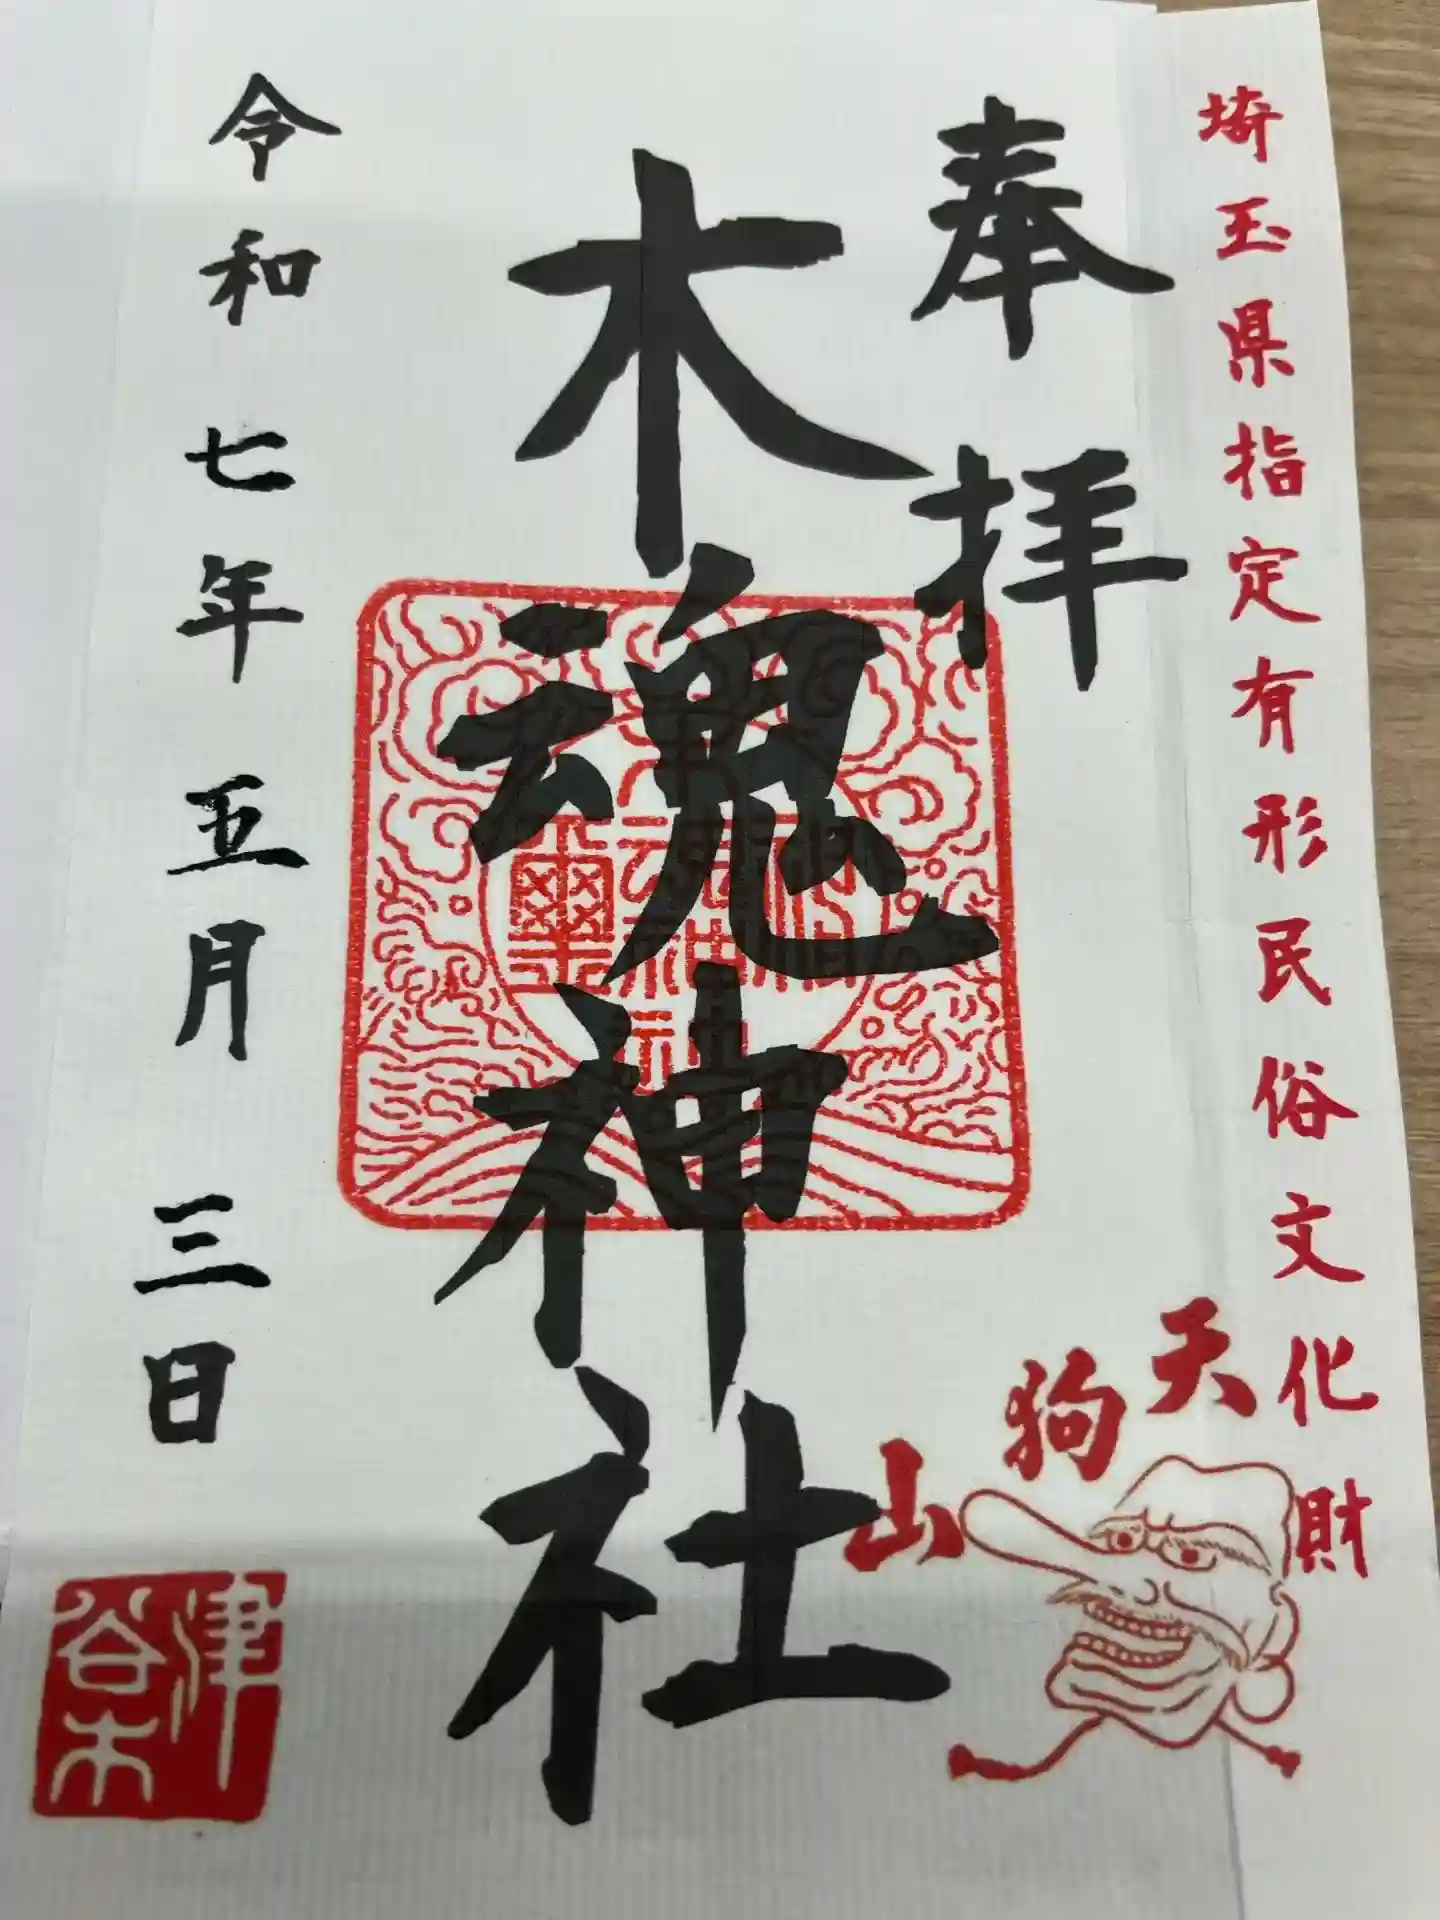 埼玉県指定有形民俗文化財
天狗山
奉拝
木魂神社
令和七年五月三日
津谷木